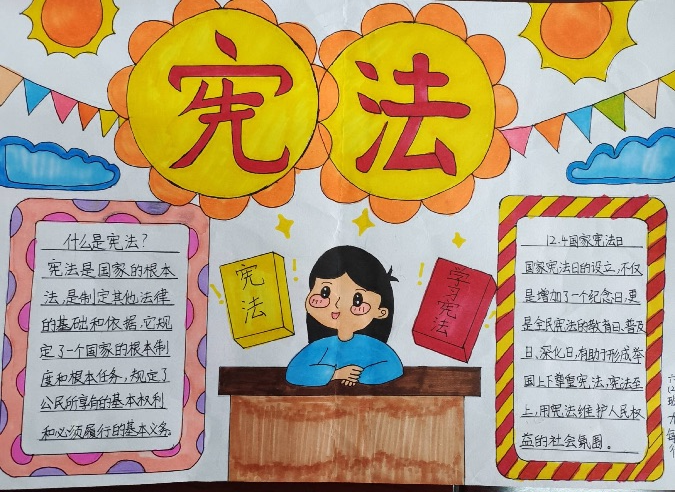 宪法
什么是宪法?
宪法是国家的根本
法,是制定其他法律
的基础和依据,它规
定了一个国家的根本制
度和根本任务,规定了
公民所享有的基本权利
和必须履行的基本义务.
宪法
学习宪法
12.4国家宪法日
国家宪法日的设立,不仅
是增加了一个纪念日,更
是全民宪法的教育日、普及
日、深化日,有助于形成举
国上下尊重宪法、宪法至
上,用宪法维护人民权
益的社会氛围。